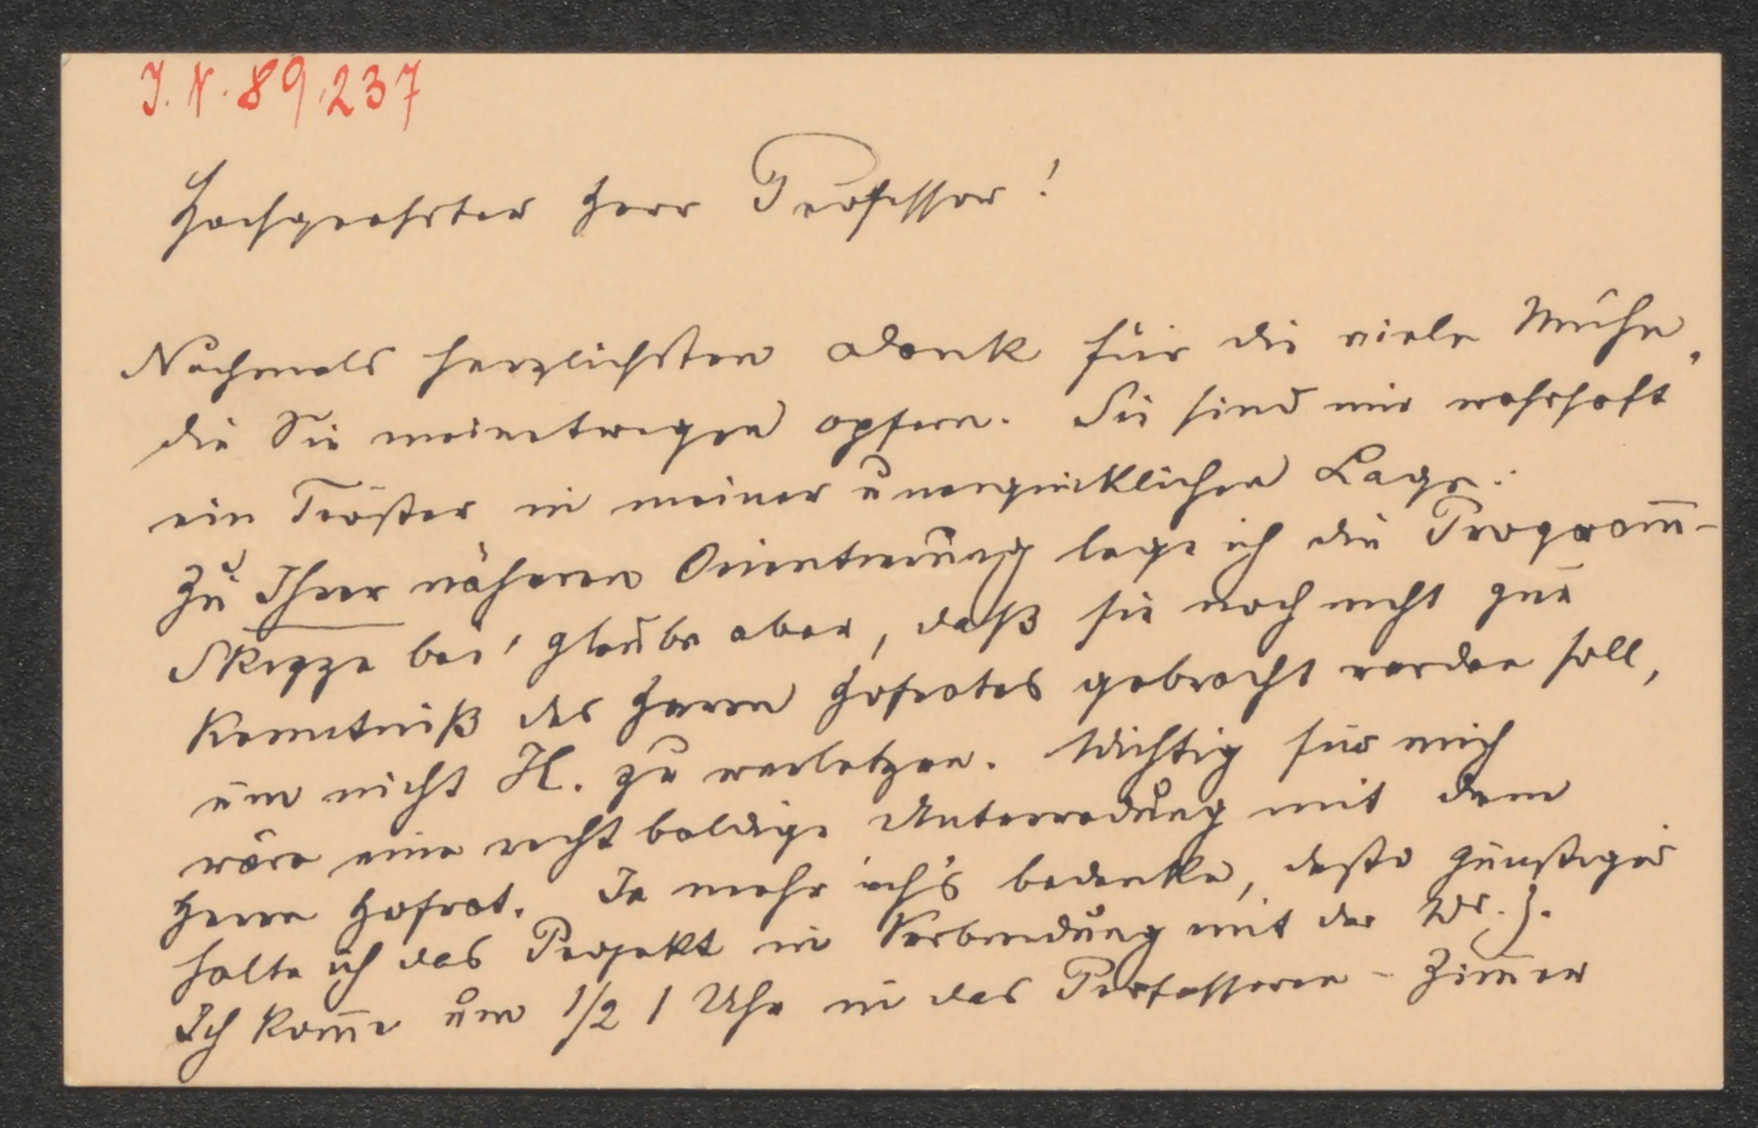 J. N. 89,237
Hochgeehrter Herr Professor!
Nochmals herzlichsten Dank für die viele Mühe,
die Sie meinetwegen opfern. Sie sind mir wahrhaft
ein Tröster in meiner unerquicklichen Lage.
Zu Ihrer näheren Orientierung lege ich die Program̅-
Skizze bei, glaube aber, daß sie noch nicht zur
Kenntniß des Herrn Hofrates gebracht werden soll,
um nicht H. zu verletzen. Wichtig für mich
wäre eine recht baldige Unterredung mit dem
Herrn Hofrat. Je mehr ich's bedenke, desto günstiger
halte ich das Projekt in Verbindung mit der Wr. Z.
Ich kom̅e um 1/2 1 Uhr in das Professoren-Zim̅er